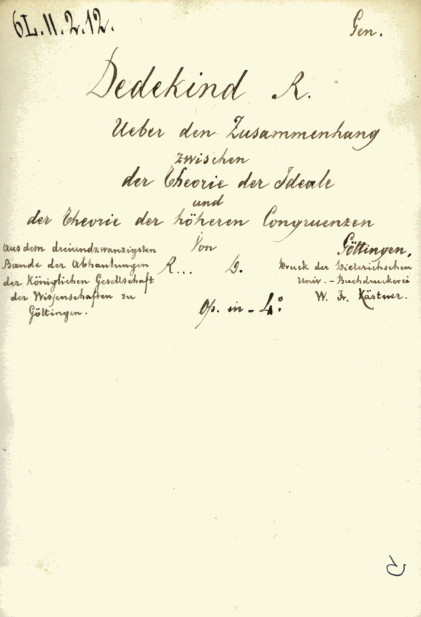 6L.II.2.12.
Gen.
Dedekind R.
Ueber den Zusammenhang
zwischen
der Theorie der Ideale
und
der Theorie der höheren Congruenzen
Von
R... D.
Aus dem dreiundzwanzigsten
Bande der Abhantungen
der Königlichen Gesellschaft
der Wissenschaften zu
Göttingen.
Göttingen,
Druck der Dieterichschen
Univ. - Buchdruckerei
W. Fr. Kästner.
Op. in - 4.º